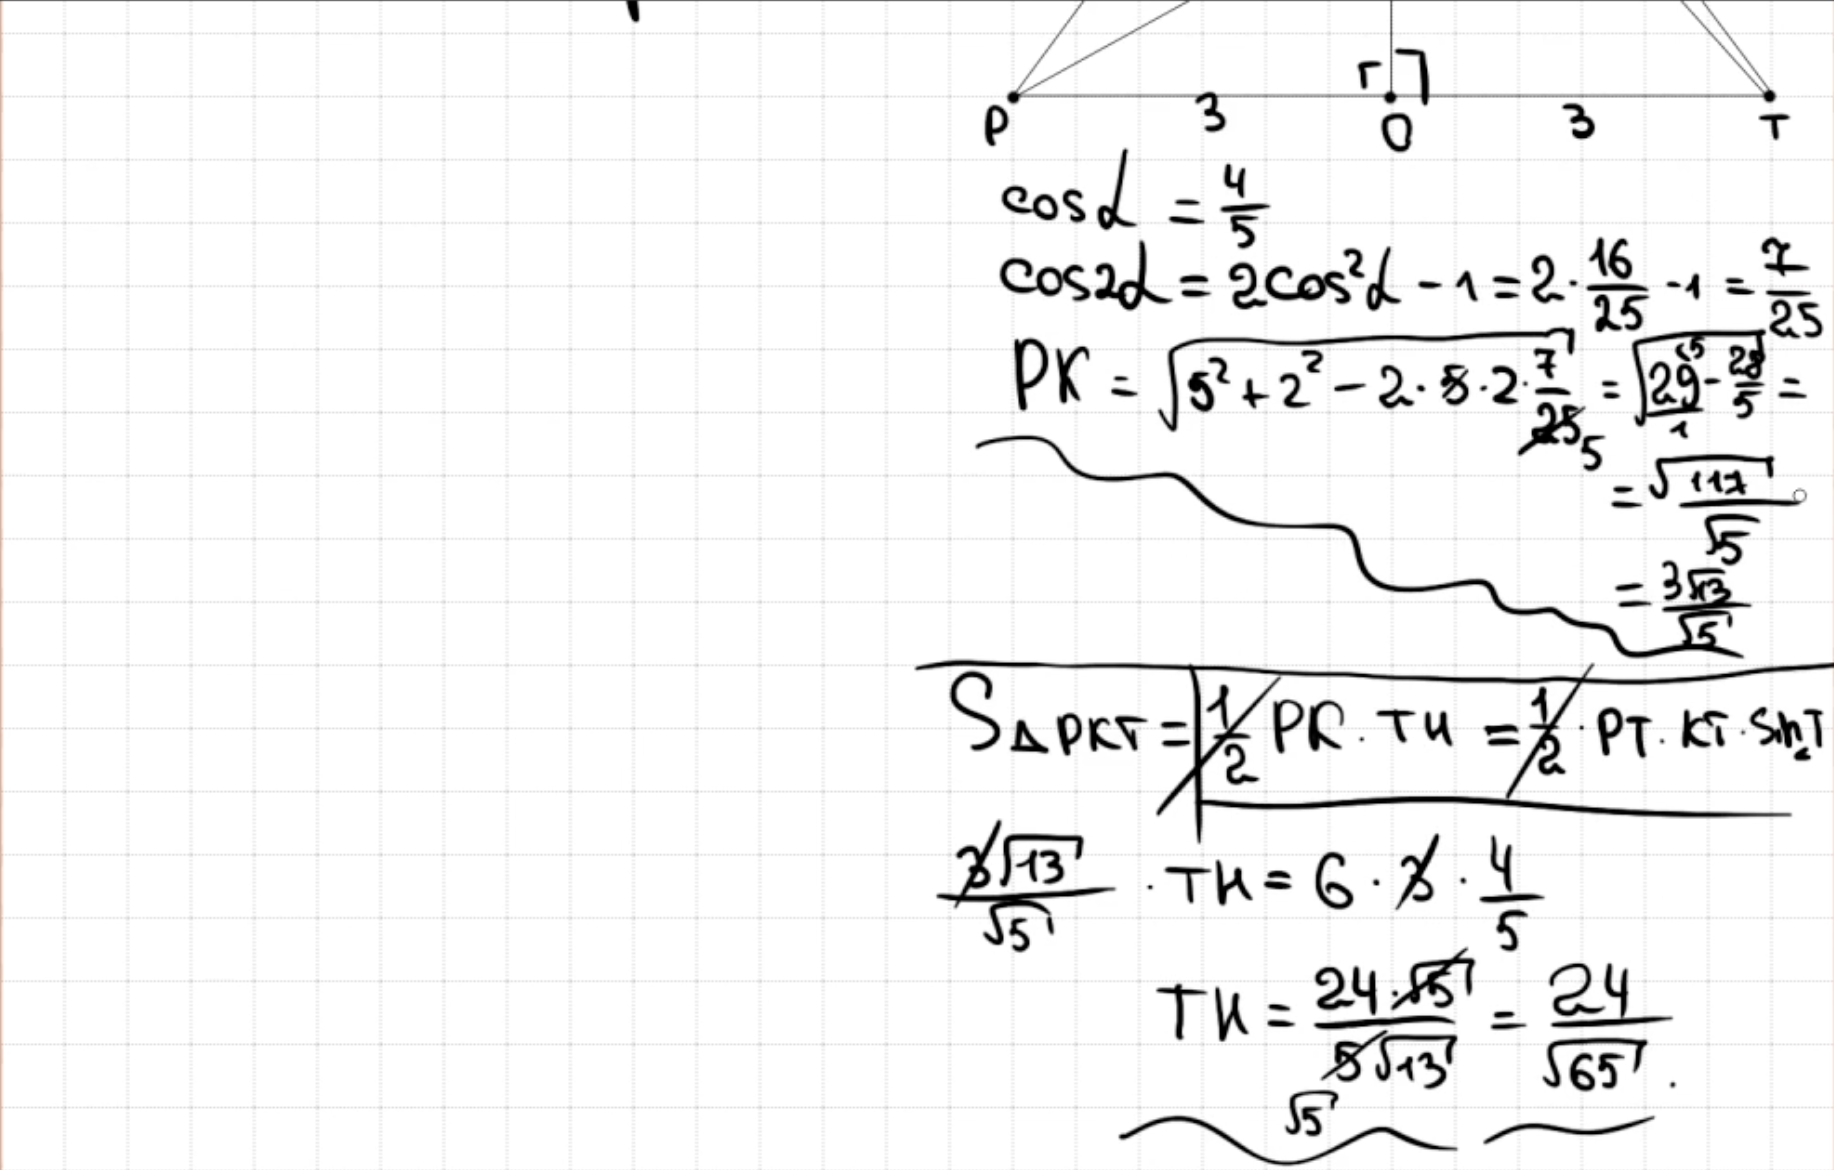 г
P 3 O 3 T
cos α = 4/5
cos2α = 2cos²α - 1 = 2·16/25 - 1 = 7/25
PK = √(5² + 2² - 2·5·2·7/25 5) = √(29/1 (5 - 28/5) =
= √117/√5
= 3√13/√5
S△PKT = 1/2 PK · TH = 1/2 · PT · KT · sin∠T
3√13/√5 · TH = 6 · 3 · 4/5
TH = 24·√5/5√13 = 24/√65.
√5